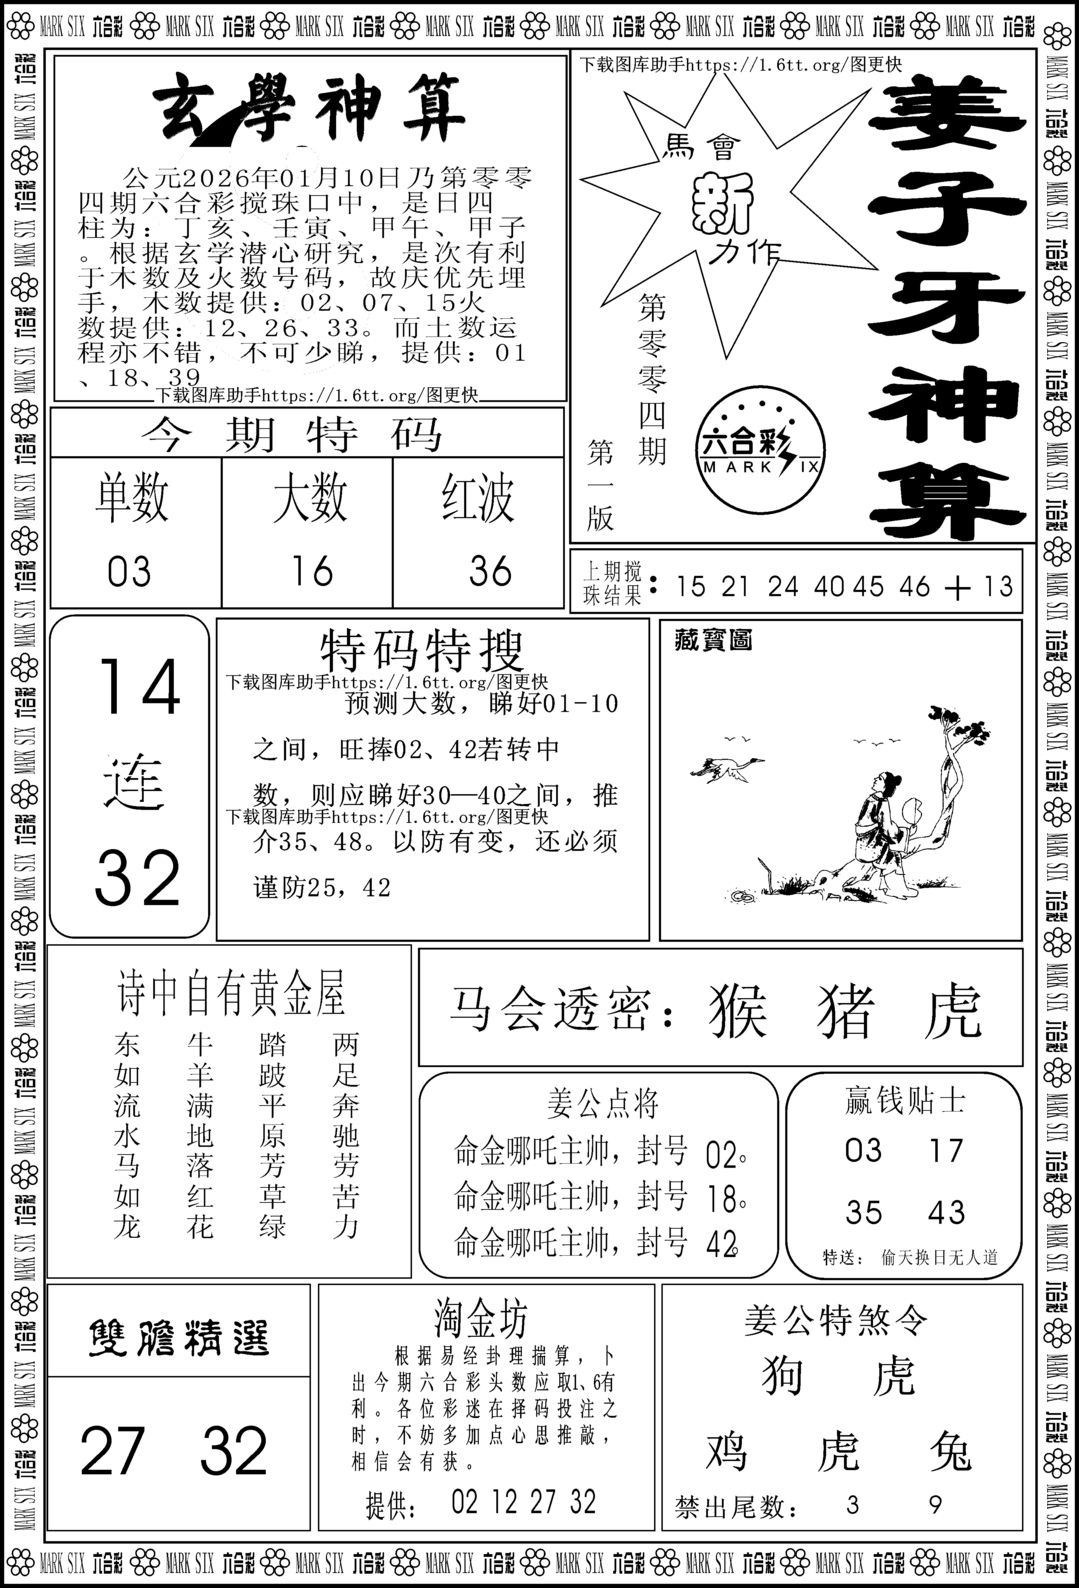 MARK SIX 六合彩 MARK SIX 六合彩 MARK SIX 六合彩 MARK SIX 六合彩 MARK SIX 六合彩 MARK SIX 六合彩 MARK SIX 六合彩 MARK SIX 六合彩
玄學神算
公元2026年01月10日乃第零零
四期六合彩搅珠口中，是日四
柱为：丁亥、壬寅、甲午、甲子
。根据玄学潜心研究，是次有利
于木数及火数号码，故庆优先埋
手，木数提供：02、07、15火
数提供：12、26、33。而土数运
程亦不错，不可少睇，提供：01
、18、39
下载图库助手https://1.6tt.org/图更快
下载图库助手https://1.6tt.org/图更快
馬會
新
力作
姜子牙神算
第零零四期
第一版
六合彩
MARK SIX
今期特码
单数 大数 红波
03 16 36
上期搅
珠结果：15 21 24 40 45 46 + 13
14
连
32
特码特搜
下载图库助手https://1.6tt.org/图更快
预测大数，睇好01-10
之间，旺捧02、42若转中
数，则应睇好30—40之间，推
下载图库助手https://1.6tt.org/图更快
介35、48。以防有变，还必须
谨防25，42
藏寶圖
诗中自有黄金屋
东 牛 踏 两
如 羊 跛 足
流 满 平 奔
水 地 原 驰
马 落 芳 劳
如 红 草 苦
龙 花 绿 力
马会透密：猴 猪 虎
姜公点将
命金哪吒主帅，封号 02。
命金哪吒主帅，封号 18。
命金哪吒主帅，封号 42。
赢钱贴士
03 17
35 43
特送： 偷天换日无人道
雙膽精選
27 32
淘金坊
根据易经卦理揣算，卜
出今期六合彩头数应取1、6有
利。各位彩迷在择码投注之
时，不妨多加点心思推敲，
相信会有获。
提供： 02 12 27 32
姜公特煞令
狗 虎
鸡 虎 兔
禁出尾数： 3 9
MARK SIX 六合彩 MARK SIX 六合彩 MARK SIX 六合彩 MARK SIX 六合彩 MARK SIX 六合彩 MARK SIX 六合彩 MARK SIX 六合彩 MARK SIX 六合彩